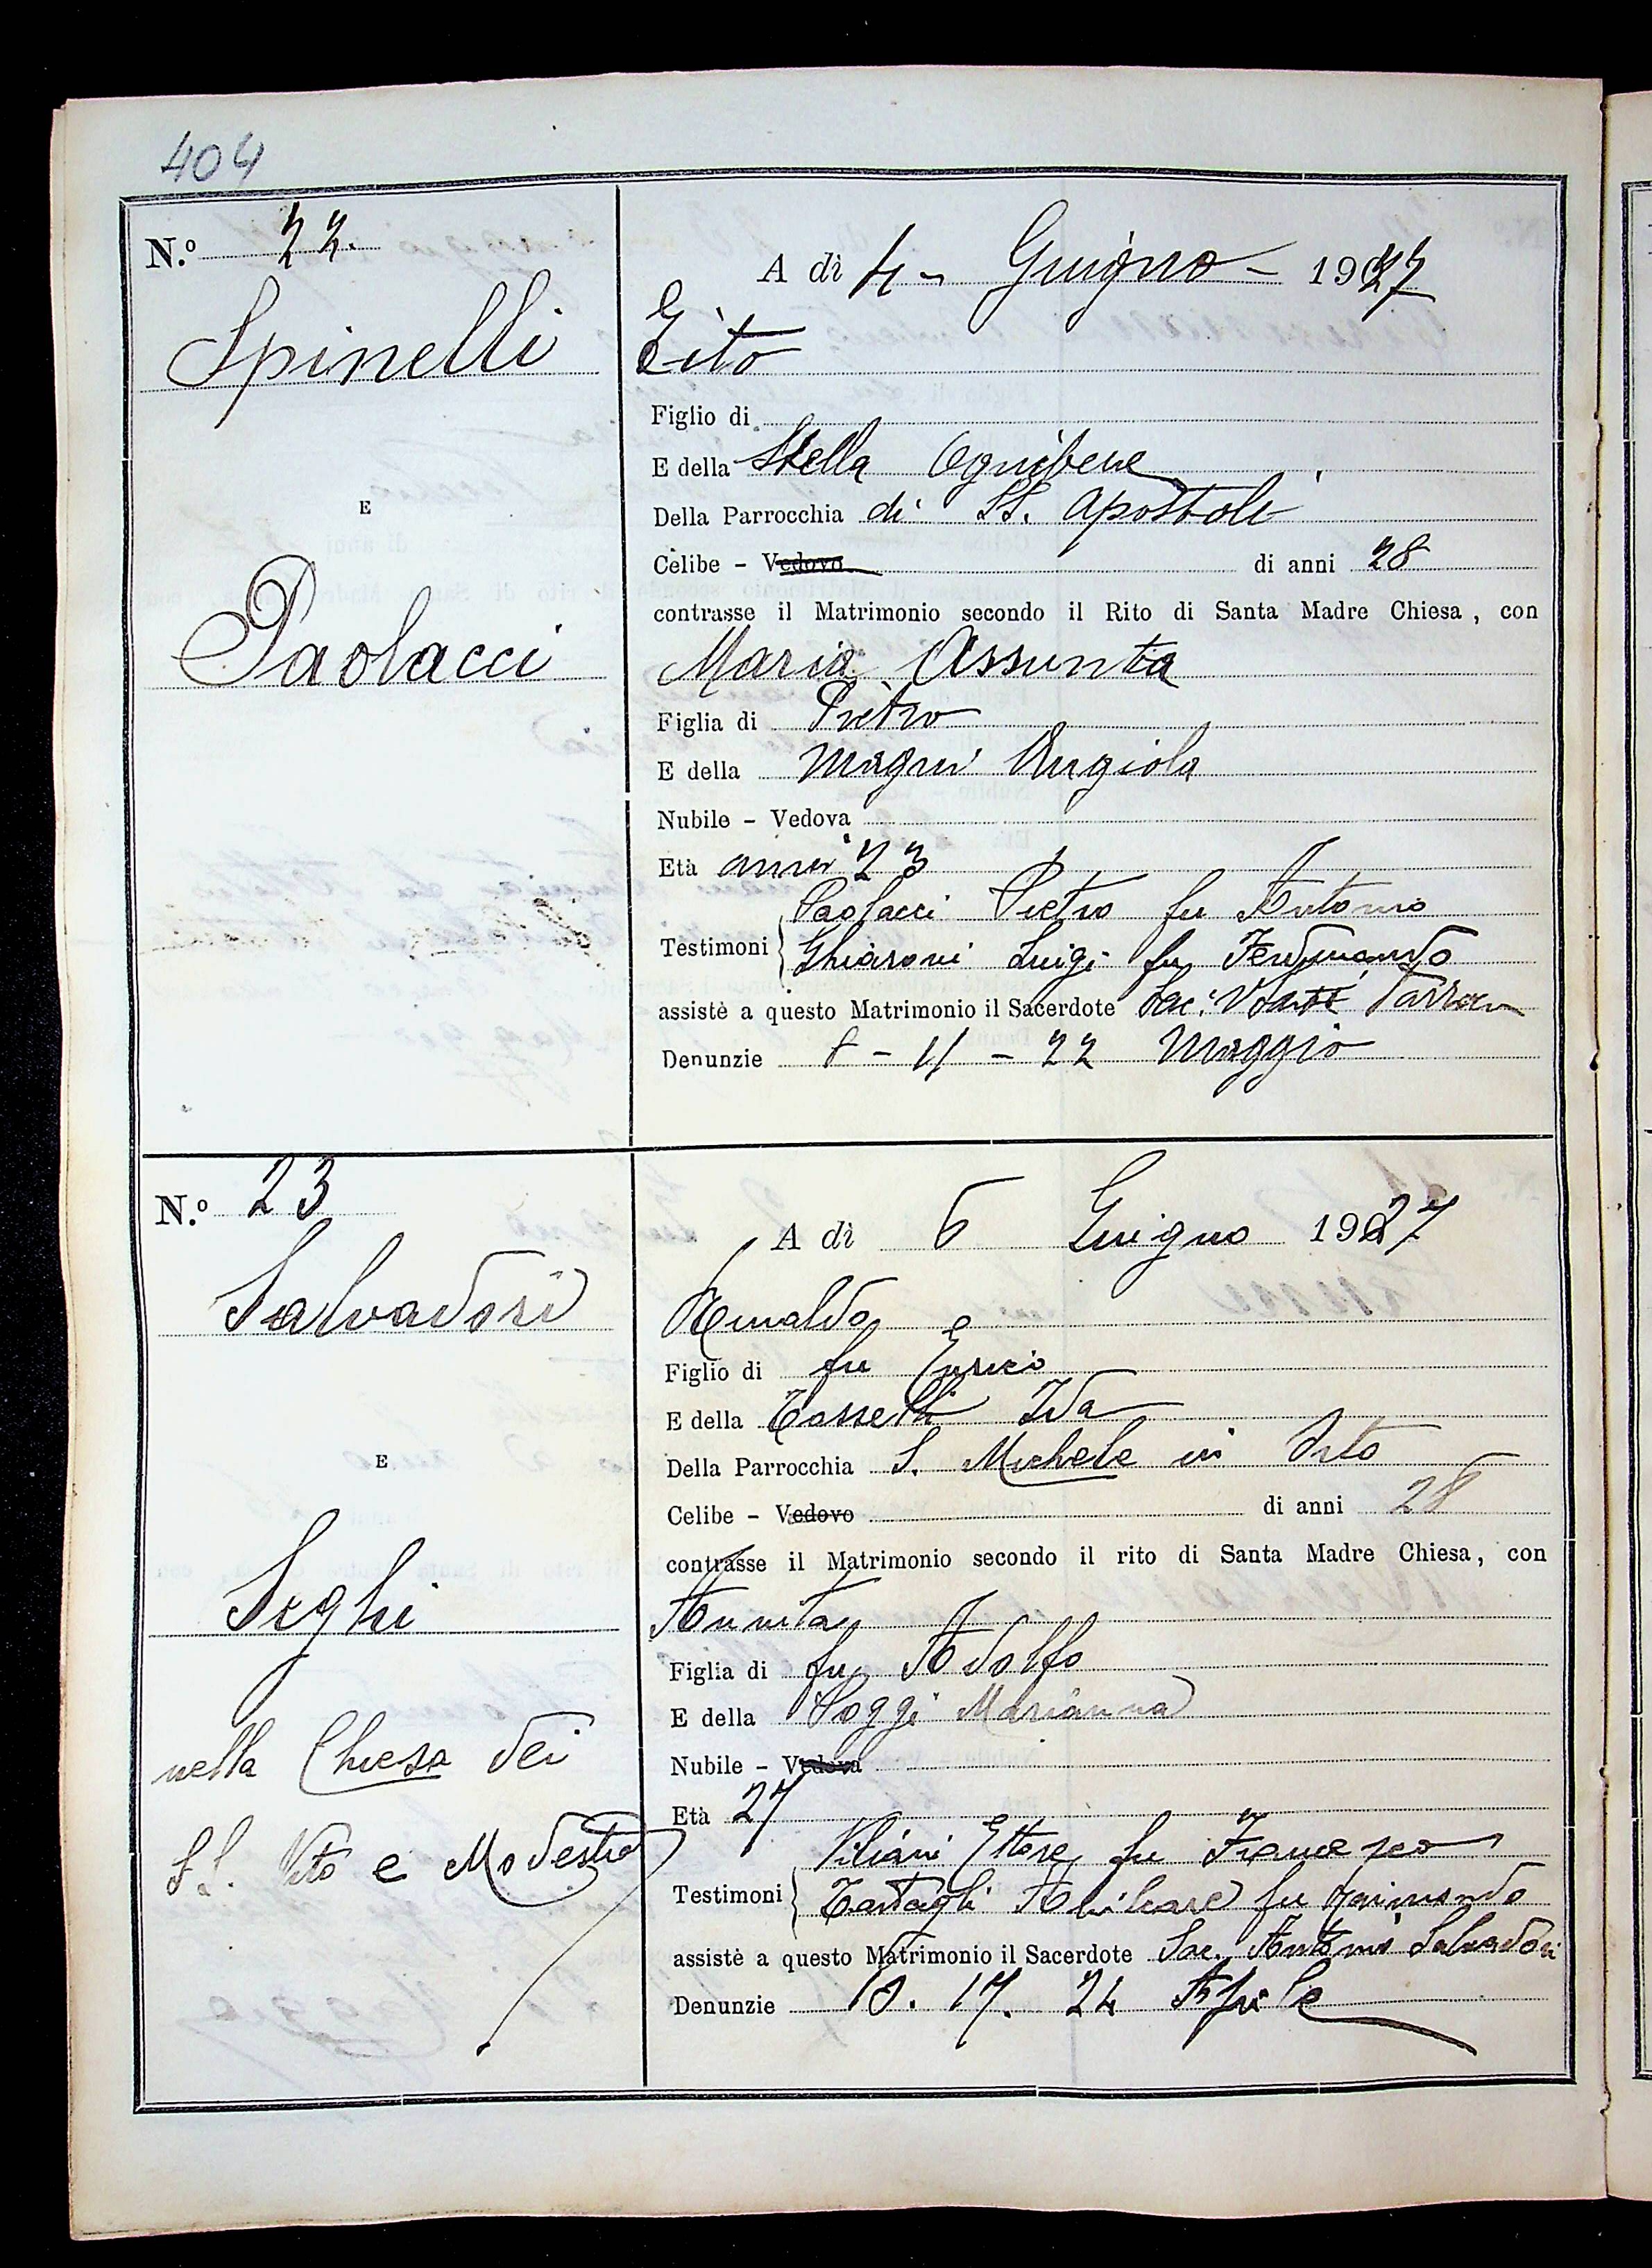 404
N.º 22.
A dì 4 - Giugno - 1927
Spinelli
Figlio di
E della Stella Ognibene
Della Parrocchia di SS. Apostoli
E
Celibe - Vedovo di anni 28
contrasse il Matrimonio secondo il Rito di Santa Madre Chiesa, con
Paolacci
Maria Assunta
Figlia di Pietro
E della Magni Angiola
Nubile - Vedova
Età anni 23
Paolacci Pietro fu Antonio
Testimoni Ghiaroni Luigi fu Ferdinando
assistè a questo Matrimonio il Sacerdote Sac.
Denunzie 8 - 11 - 22 Maggio
N.º 23
A dì 6 Giugno 1927
Salvadori
Figlio di fu Enrico
E della Tosselli Ida
Della Parrocchia S. Michele in Orto
E
Celibe - Vedovo di anni 28
contrasse il Matrimonio secondo il rito di Santa Madre Chiesa, con
Seghi
Annita
Figlia di fu Adolfo
E della Poggi Marianna
nella Chiesa dei
Nubile - Vedova
Età 27
SS. Vito e Modesto
Viliani Ettore fu Francesco
Testimoni Tartagli Amilcare fu
assistè a questo Matrimonio il Sacerdote Sac. Antonio Salvadori
Denunzie 10. 17. 24 Aprile